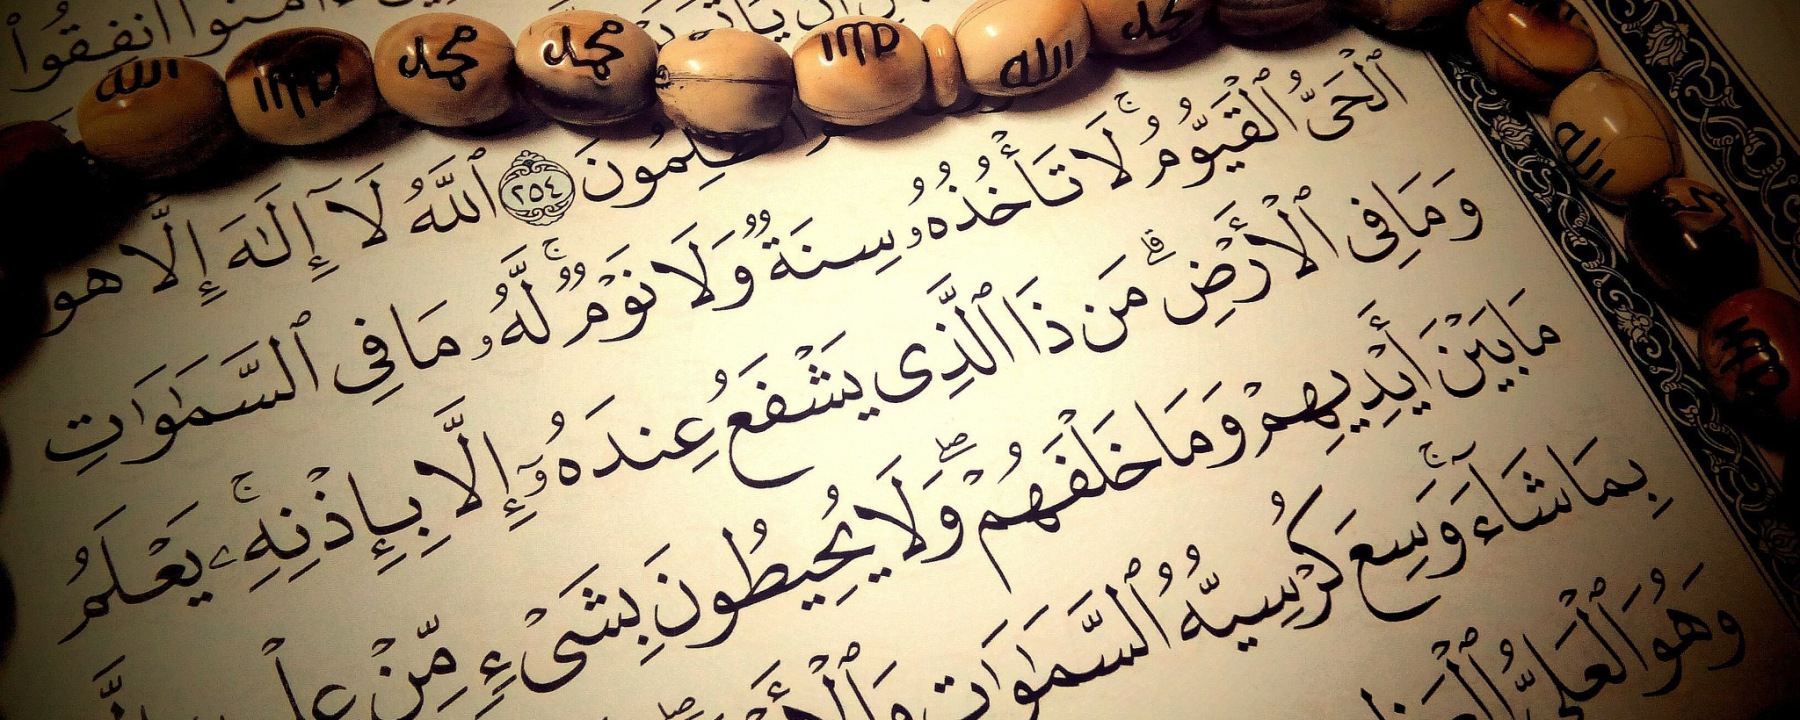 ءَامَنُوٓا۟ أَنفِقُوا۟
أَن يَأْتِىَ
ٱلظَّـٰلِمُونَ ٢٥٤ ٱللَّهُ لَآ إِلَـٰهَ إِلَّا هُوَ
ٱلْحَىُّ ٱلْقَيُّومُ ۚ لَا تَأْخُذُهُۥ سِنَةٌۭ وَلَا نَوْمٌۭ ۚ لَّهُۥ مَا فِى ٱلسَّمَـٰوَٰتِ
وَمَا فِى ٱلْأَرْضِ ۗ مَن ذَا ٱلَّذِى يَشْفَعُ عِندَهُۥٓ إِلَّا بِإِذْنِهِۦ ۚ يَعْلَمُ
مَا بَيْنَ أَيْدِيهِمْ وَمَا خَلْفَهُمْ ۖ وَلَا يُحِيطُونَ بِشَىْءٍۢ مِّنْ
بِمَا شَآءَ ۚ وَسِعَ كُرْسِيُّهُ ٱلسَّمَـٰوَٰتِ
وَهُوَ ٱلْعَلِىُّ
الله
محمد
محمد
الله
محمد
الله